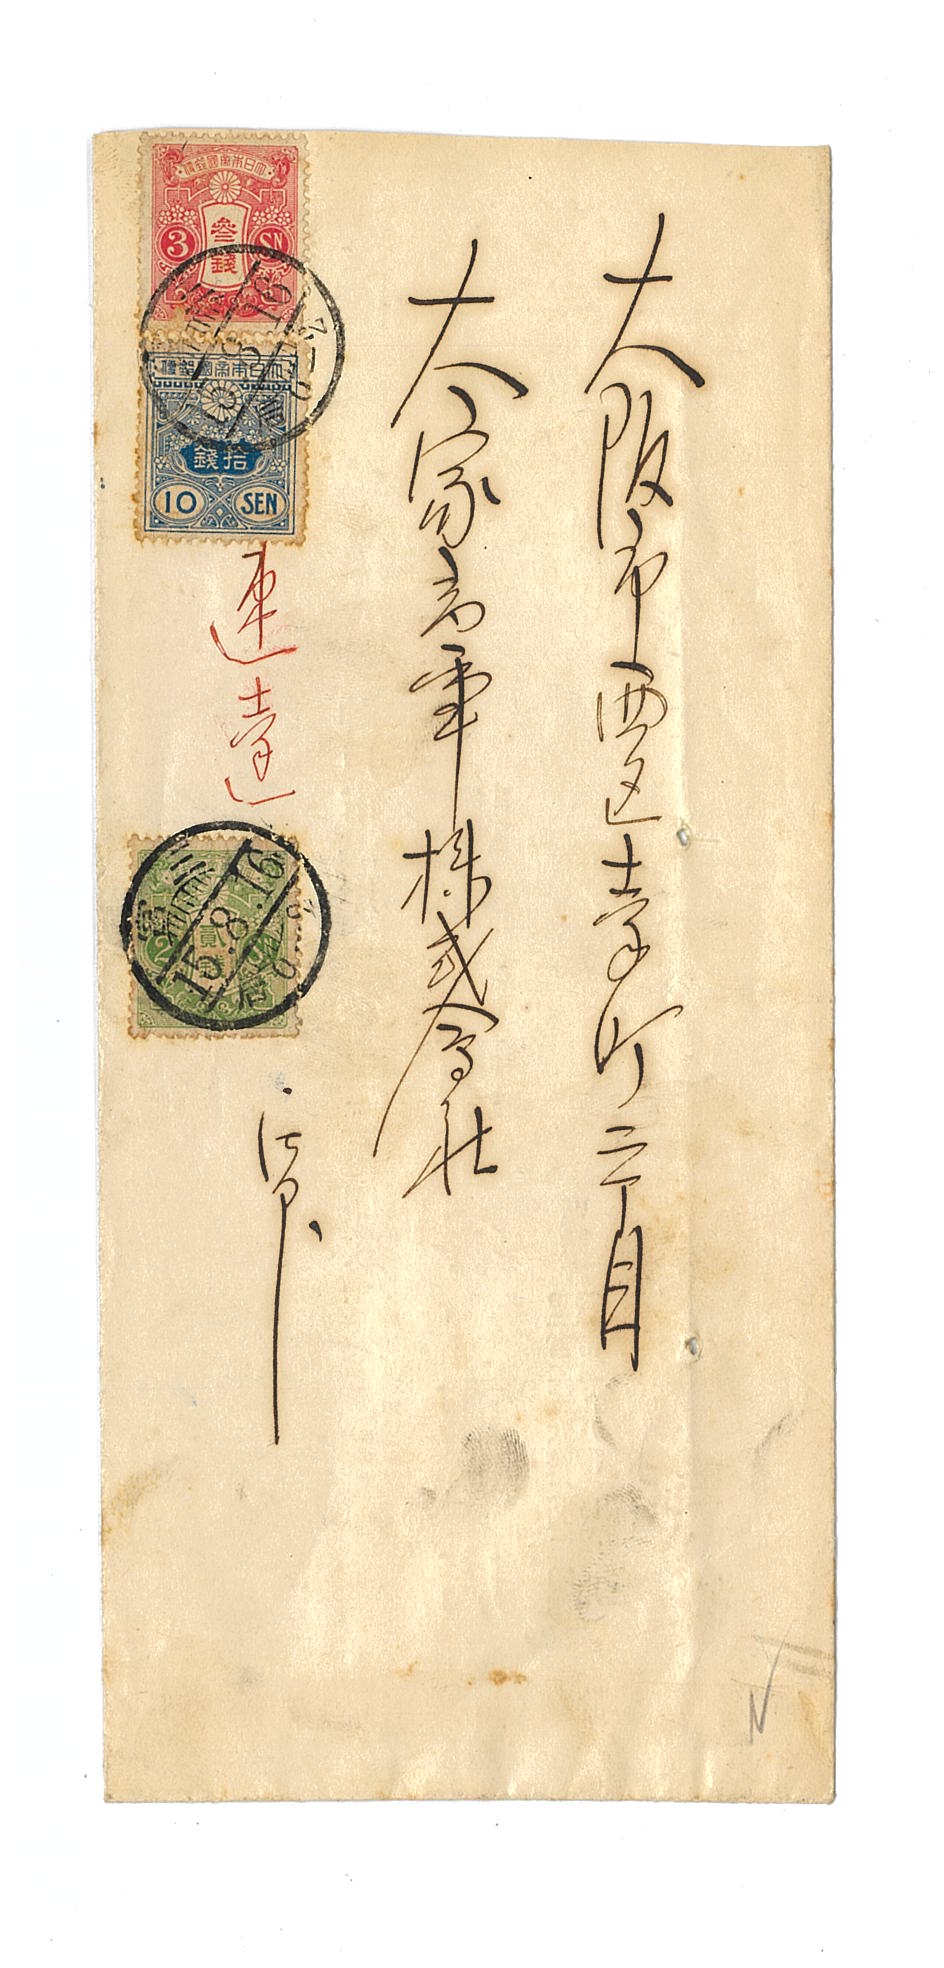 大阪市西区幸町二丁目
大家商事株式會社
御中
速達
大日本帝國郵便
参銭
3 SN
大日本帝國郵便
拾錢
10 SEN
貳
15.8.16